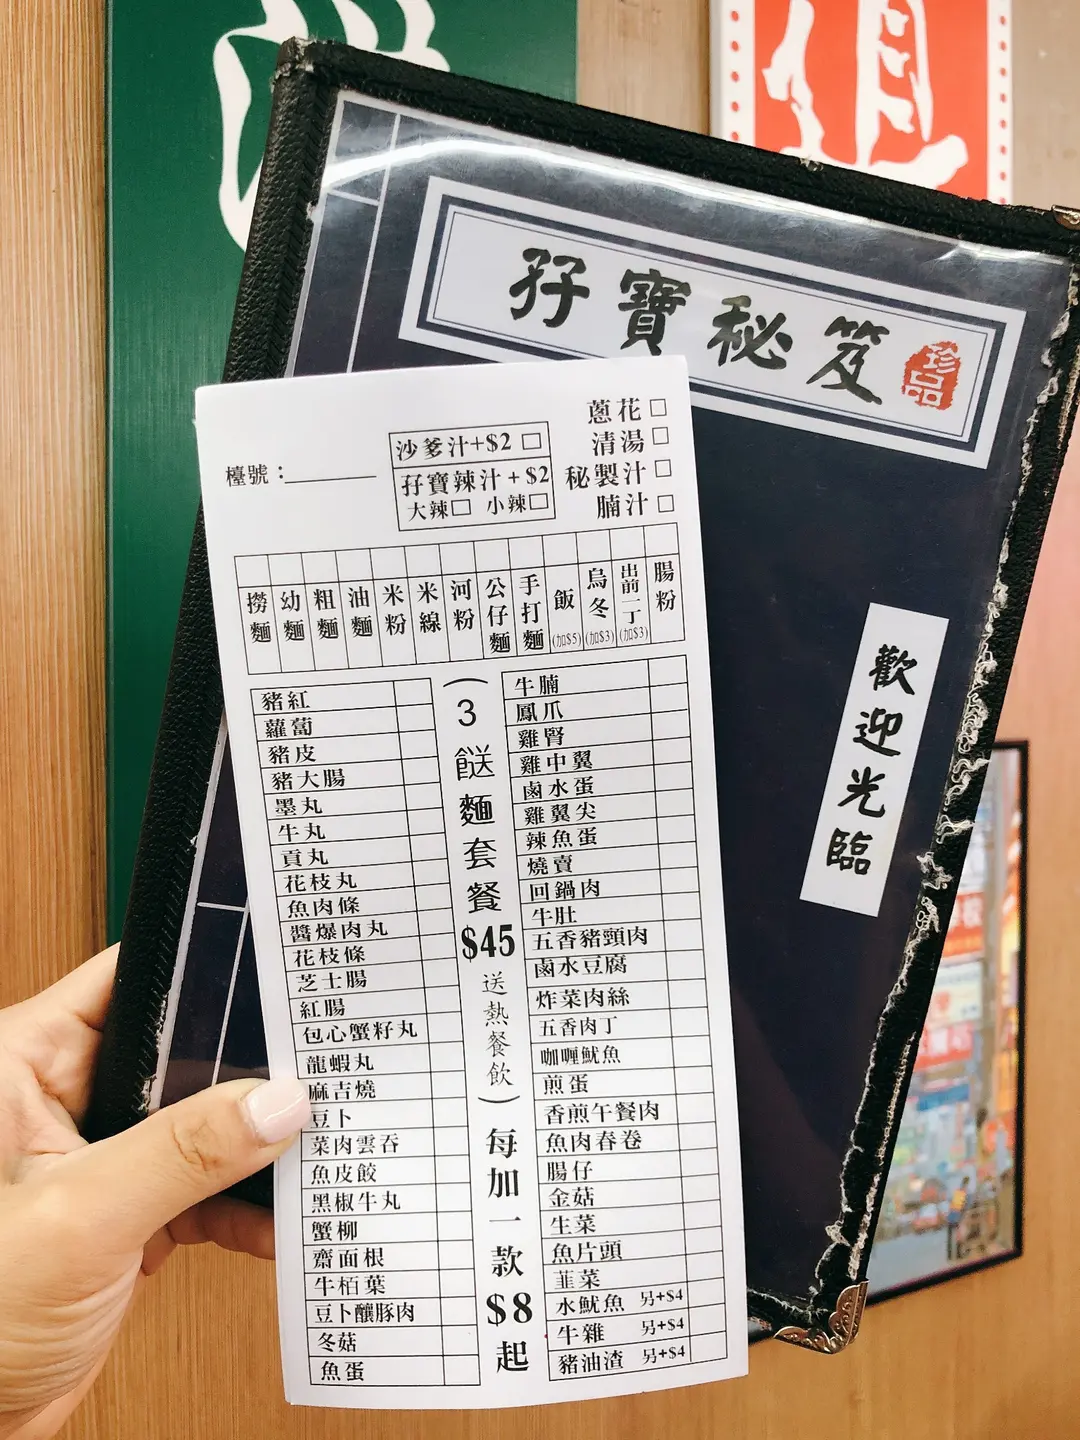 孖寶秘笈
珍品
歡迎光臨
蔥花
清湯
秘製汁
腩汁
沙爹汁+$2
孖寶辣汁+$2
大辣 小辣
檯號：
撈麵
幼麵
粗麵
油麵
米粉
米線
河粉
公仔麵
手打麵
飯(加$5)
烏冬(加$3)
出前一丁(加$3)
腸粉
豬紅
蘿蔔
豬皮
豬大腸
墨丸
牛丸
貢丸
花枝丸
魚肉條
醬爆肉丸
花枝條
芝士腸
紅腸
包心蟹籽丸
龍蝦丸
麻吉燒
豆卜
菜肉雲吞
魚皮餃
黑椒牛丸
蟹柳
齋面根
牛栢葉
豆卜釀豚肉
冬菇
魚蛋
(3餸麵套餐$45送熱餐飲)每加一款$8起
牛腩
鳳爪
雞腎
雞中翼
鹵水蛋
雞翼尖
辣魚蛋
燒賣
回鍋肉
牛肚
五香豬頸肉
鹵水豆腐
炸菜肉絲
五香肉丁
咖喱魷魚
煎蛋
香煎午餐肉
魚肉春卷
腸仔
金菇
生菜
魚片頭
韮菜
水魷魚 另+$4
牛雜 另+$4
豬油渣 另+$4